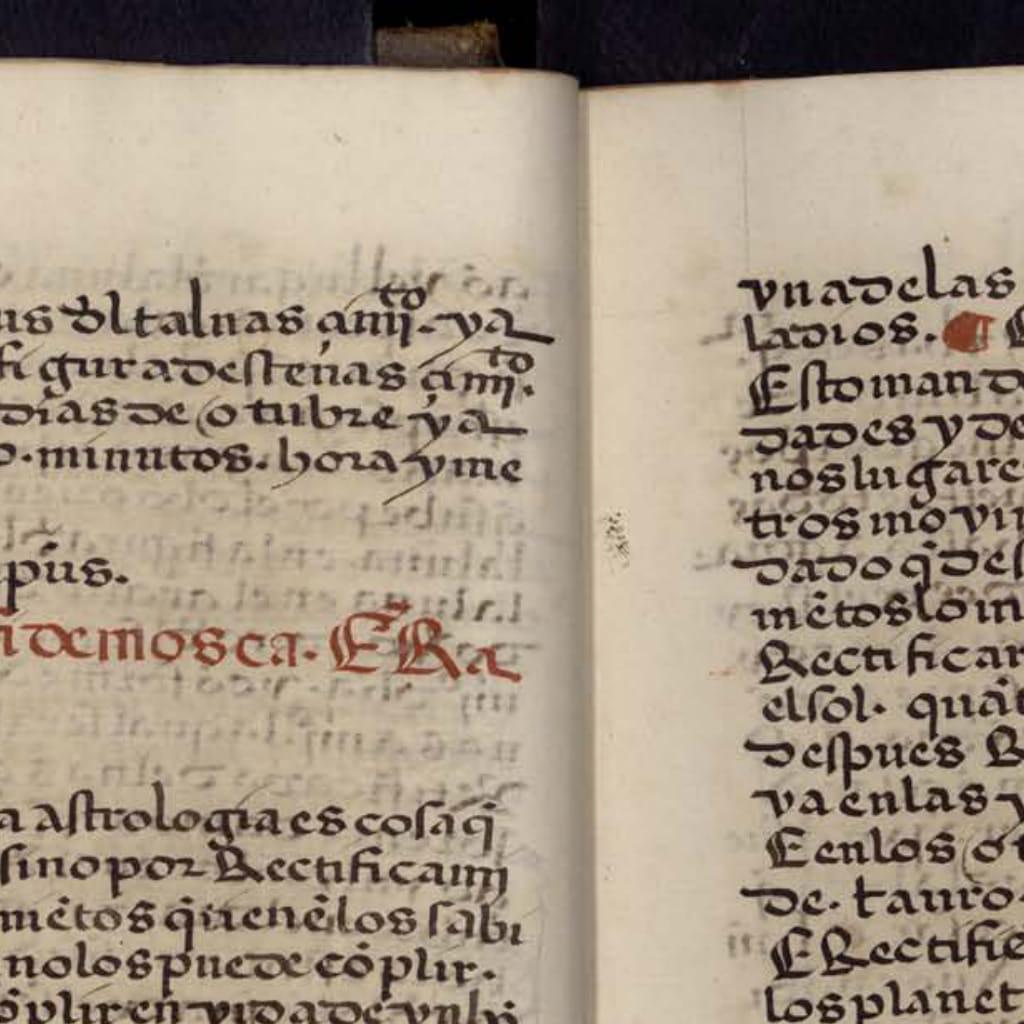 us dl taluas a iiij.to ya
figura desteñas a iiij.to
dias de otubre ya
minutos. hora y me
mosca. ERa
a astrologia es cosa q̄
sino por Rectificami
mẽtos q̃ tienẽ los sabi
no los puede cõplir.
cõplir en vida de vn hõ
vna de las
ladios. ¶
Esto man
dades y de
nos lugare
tros movi
dado q̄ des
mẽtos lo m
Rectificar
el sol. quã
despues
va en las y
E en los ot
de. tauro.
E Rectifie
los planet